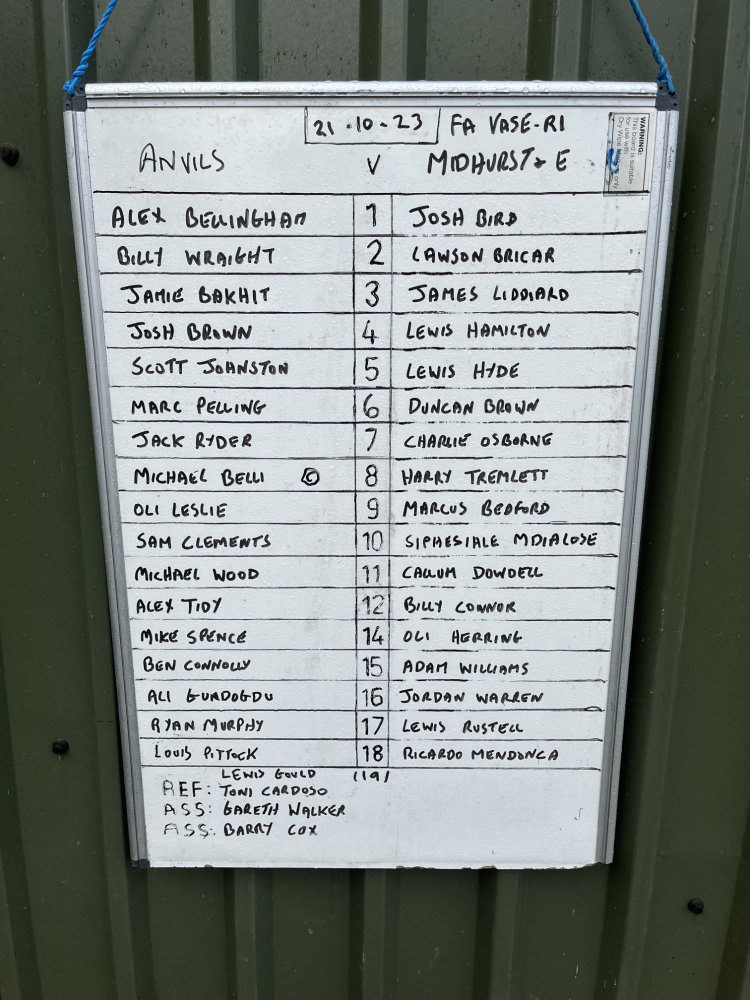 21-10-23 FA VASE-R1
WARNING:
This board is suitable
for use with
Dry Wipe only
ANVILS V MIDHURST & E
ALEX BELLINGHAM 1 JOSH BIRD
BILLY WRAIGHT 2 LAWSON BRICAR
JAMIE BAKHIT 3 JAMES LIDDIARD
JOSH BROWN 4 LEWIS HAMILTON
SCOTT JOHNSTON 5 LEWIS HYDE
MARC PELLING 6 DUNCAN BROWN
JACK RYDER 7 CHARLIE OSBORNE
MICHAEL BELLI © 8 HARRY TREMLETT
OLI LESLIE 9 MARCUS BEDFORD
SAM CLEMENTS 10 SIPHESIHLE MDIALOSE
MICHAEL WOOD 11 CALLUM DOWDELL
ALEX TIDY 12 BILLY CONNOR
MIKE SPENCE 14 OLI HERRING
BEN CONNOLLY 15 ADAM WILLIAMS
ALI GUNDOGDU 16 JORDAN WARREN
RYAN MURPHY 17 LEWIS RUSTELL
LOUIS PITTOCK 18 RICARDO MENDONCA
LEWIS GOULD (19)
REF: TONI CARDOSO
ASS: GARETH WALKER
ASS: BARRY COX